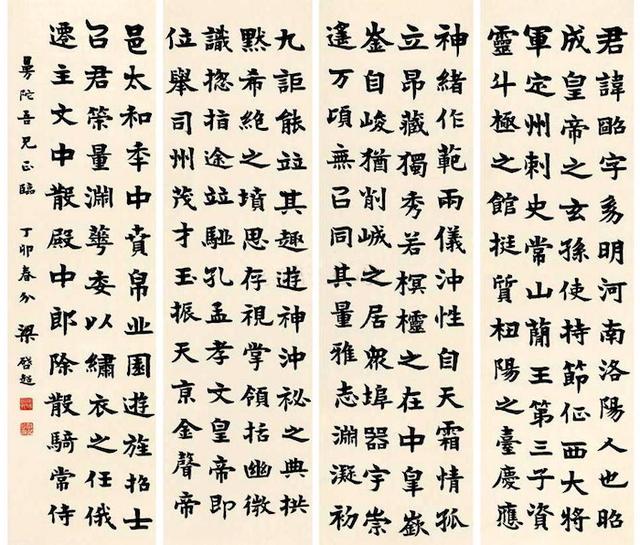 君諱昭字㓜明河南洛陽人也昭
成皇帝之玄孫使持節征西大將
軍定州刺史常山蕳王第三子資
靈斗極之館挺質杻陽之臺慶應
神緒作範兩儀沖性自天霜情孤
立昂藏獨秀若榠櫨之在中皇嶽
崟自峻猶削峸之居眾埠器宇崇
邃万頃無㠯同其量雅志淵凝初
九詎能竝其趣遊神沖祕之典拱
默希絕之墳思存視掌領括幽微
識揔指途竝驅孔孟孝文皇帝即
位舉司州茂才玉振天京金聲帝
邑太和年中賁帛丘園遊旌招士
㠯君榮量淵華委以繡衣之任俄
遷主文中散殿中郎除散騎常侍
曼陀吾兄正臨 丁卯春分 梁啓超